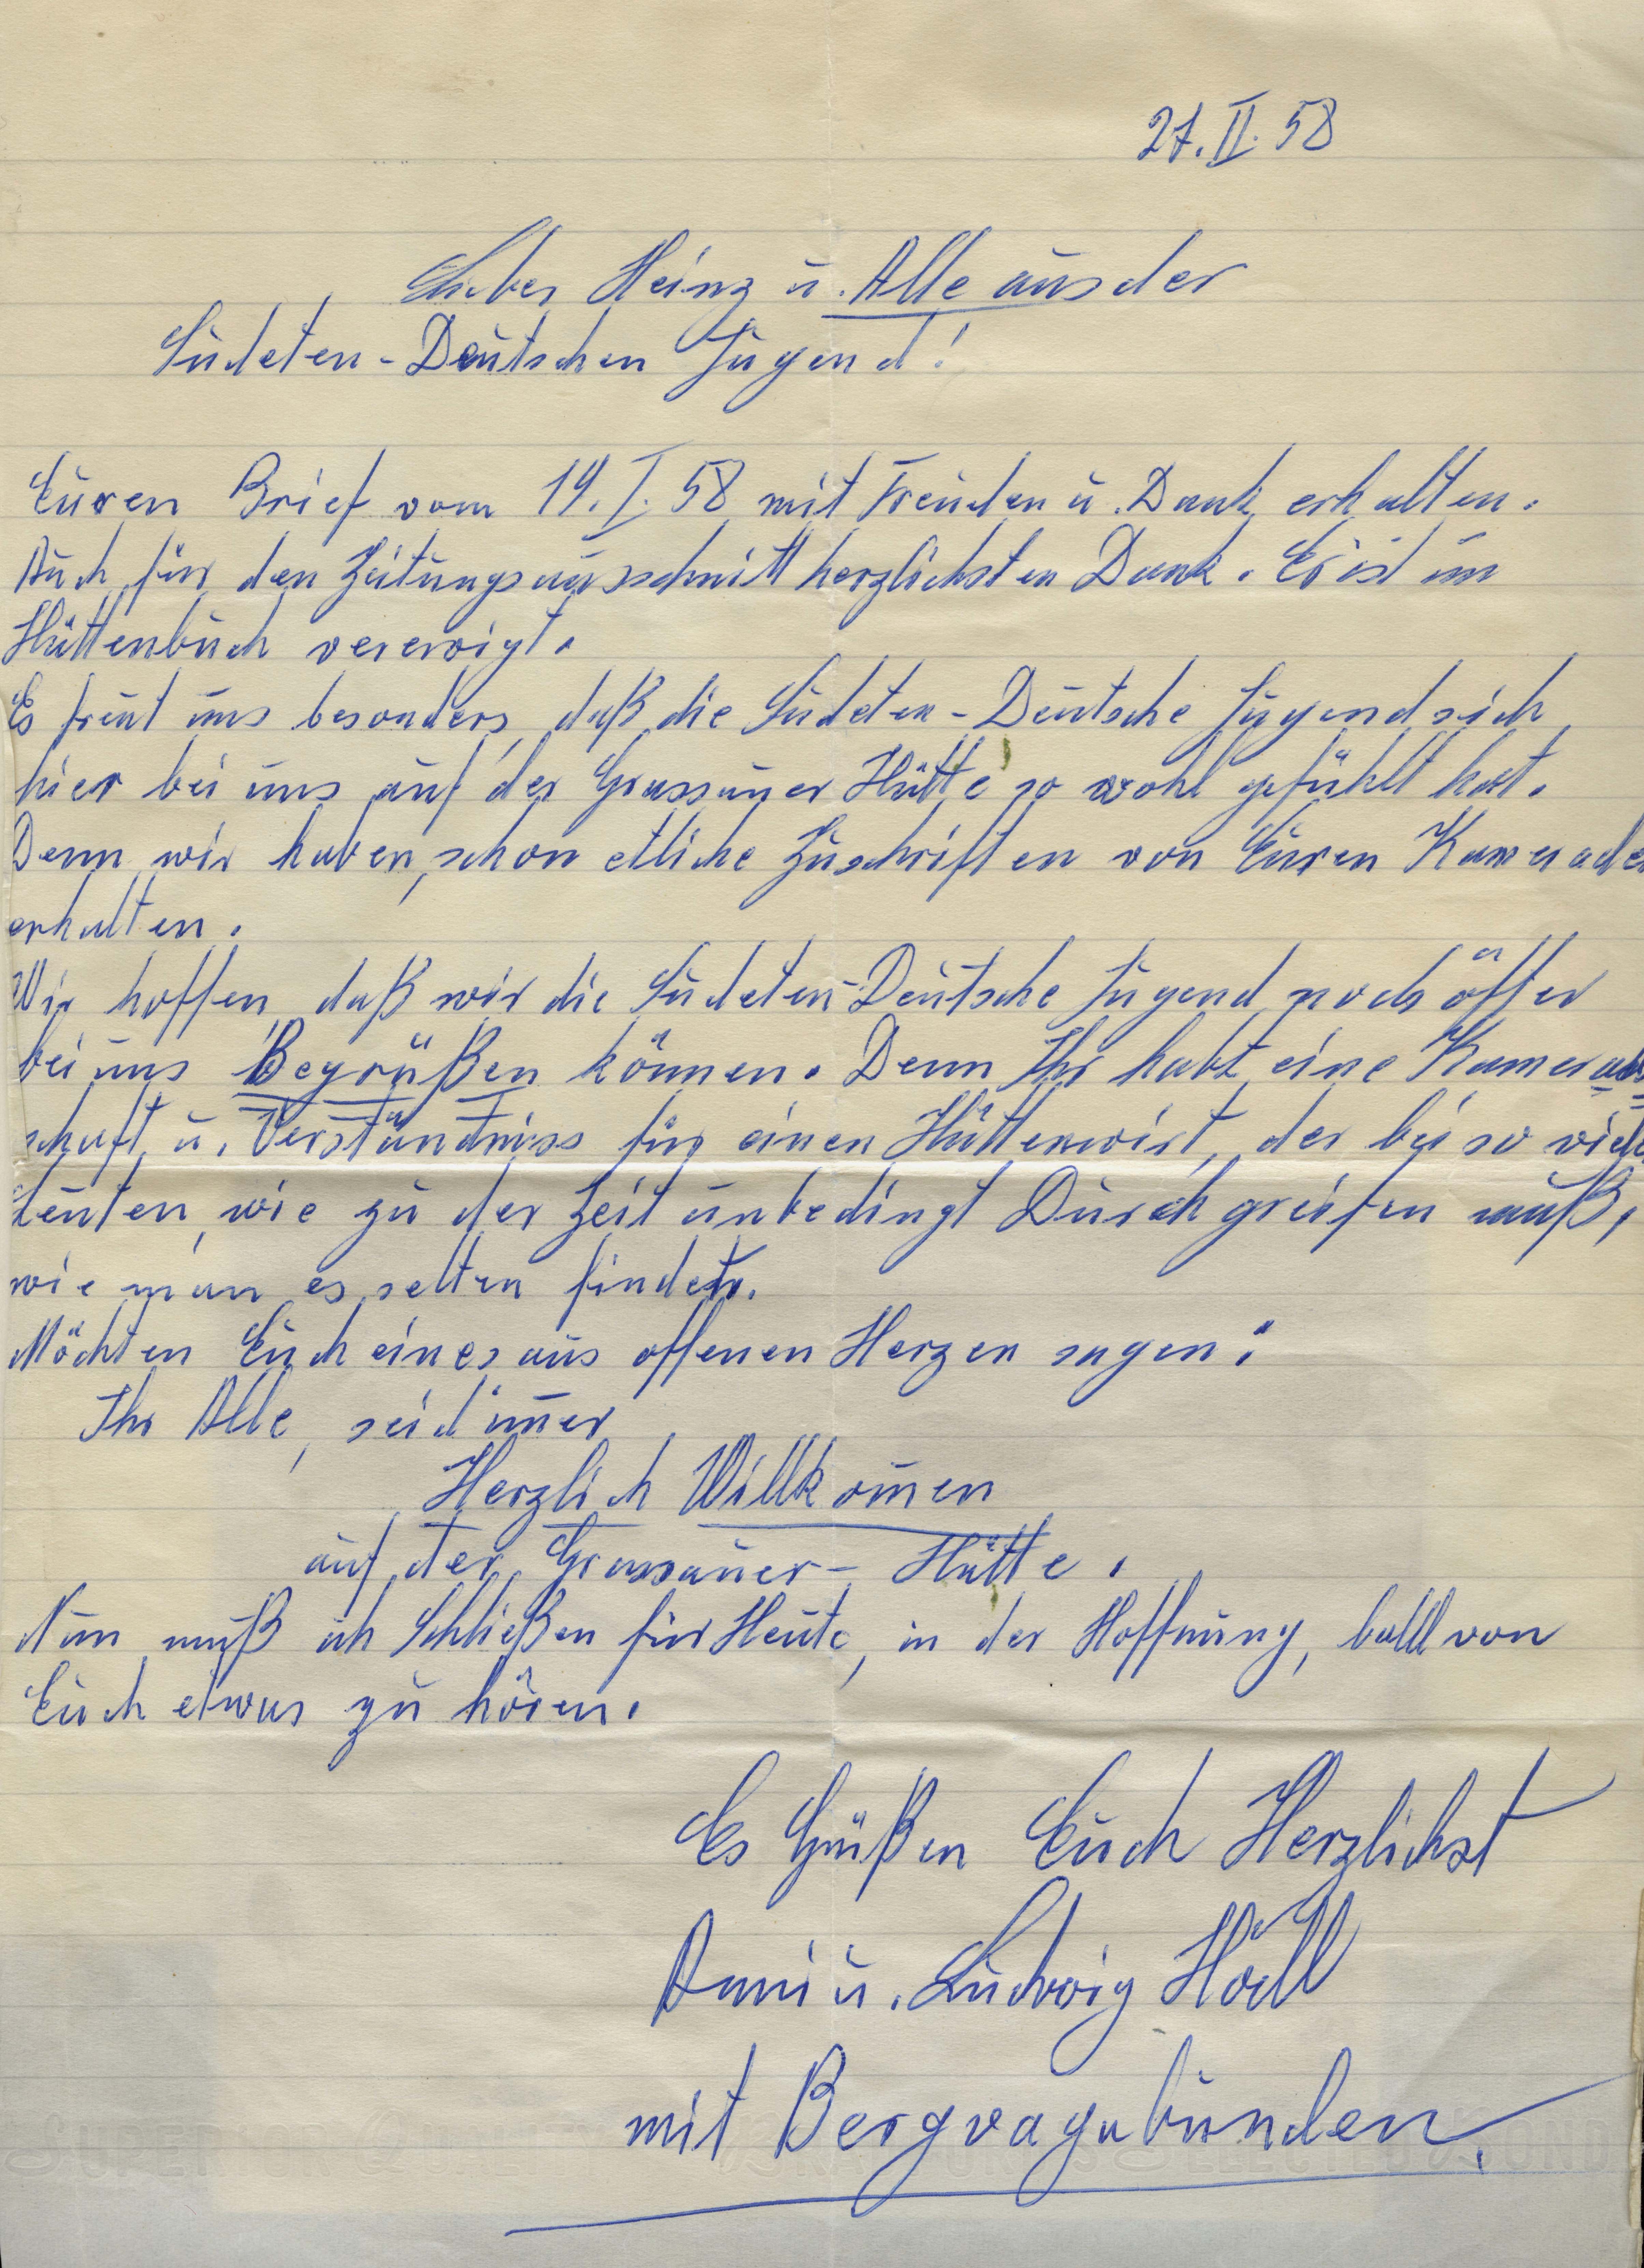 27. II. 58
Lieber Heinz u. Alle aus der
Sudeten-Deutschen Jugend!
Euren Brief vom 19. I. 58 mit Freuden u. Dank erhalten.
Auch für den Zeitungsausschnitt herzlichsten Dank. Er ist im
Hüttenbuch verewigt.
Es freut uns besonders, daß die Sudeten-Deutsche Jugend sich
hier bei uns auf der Grassauer Hütte so wohl gefühlt hat.
Denn wir haben, schon etliche Zuschriften von Euren Kameraden
erhalten.
Wir hoffen, daß wir die Sudeten-Deutsche Jugend noch öfter
bei uns Begrüßen können. Denn Ihr habt eine Kamerad
schaft u. Verständniss für einen Hüttenwirt, der bei so viele
Leuten, wie zu der Zeit unbedingt Durchgreifen muß,
wie man es selten findet.
Möchten Euch eines aus offenen Herzen sagen:
Ihr Alle, seid im̄er
Herzlich Willkom̄en
auf der Grassauer-Hütte.
Nun muß ich Schließen für Heute, in der Hoffnung, bald von
Euch etwas zu hören.
Es Grüßen Euch Herzlichst
Anni u. Ludwig Höll
mit Bergvagabunden.